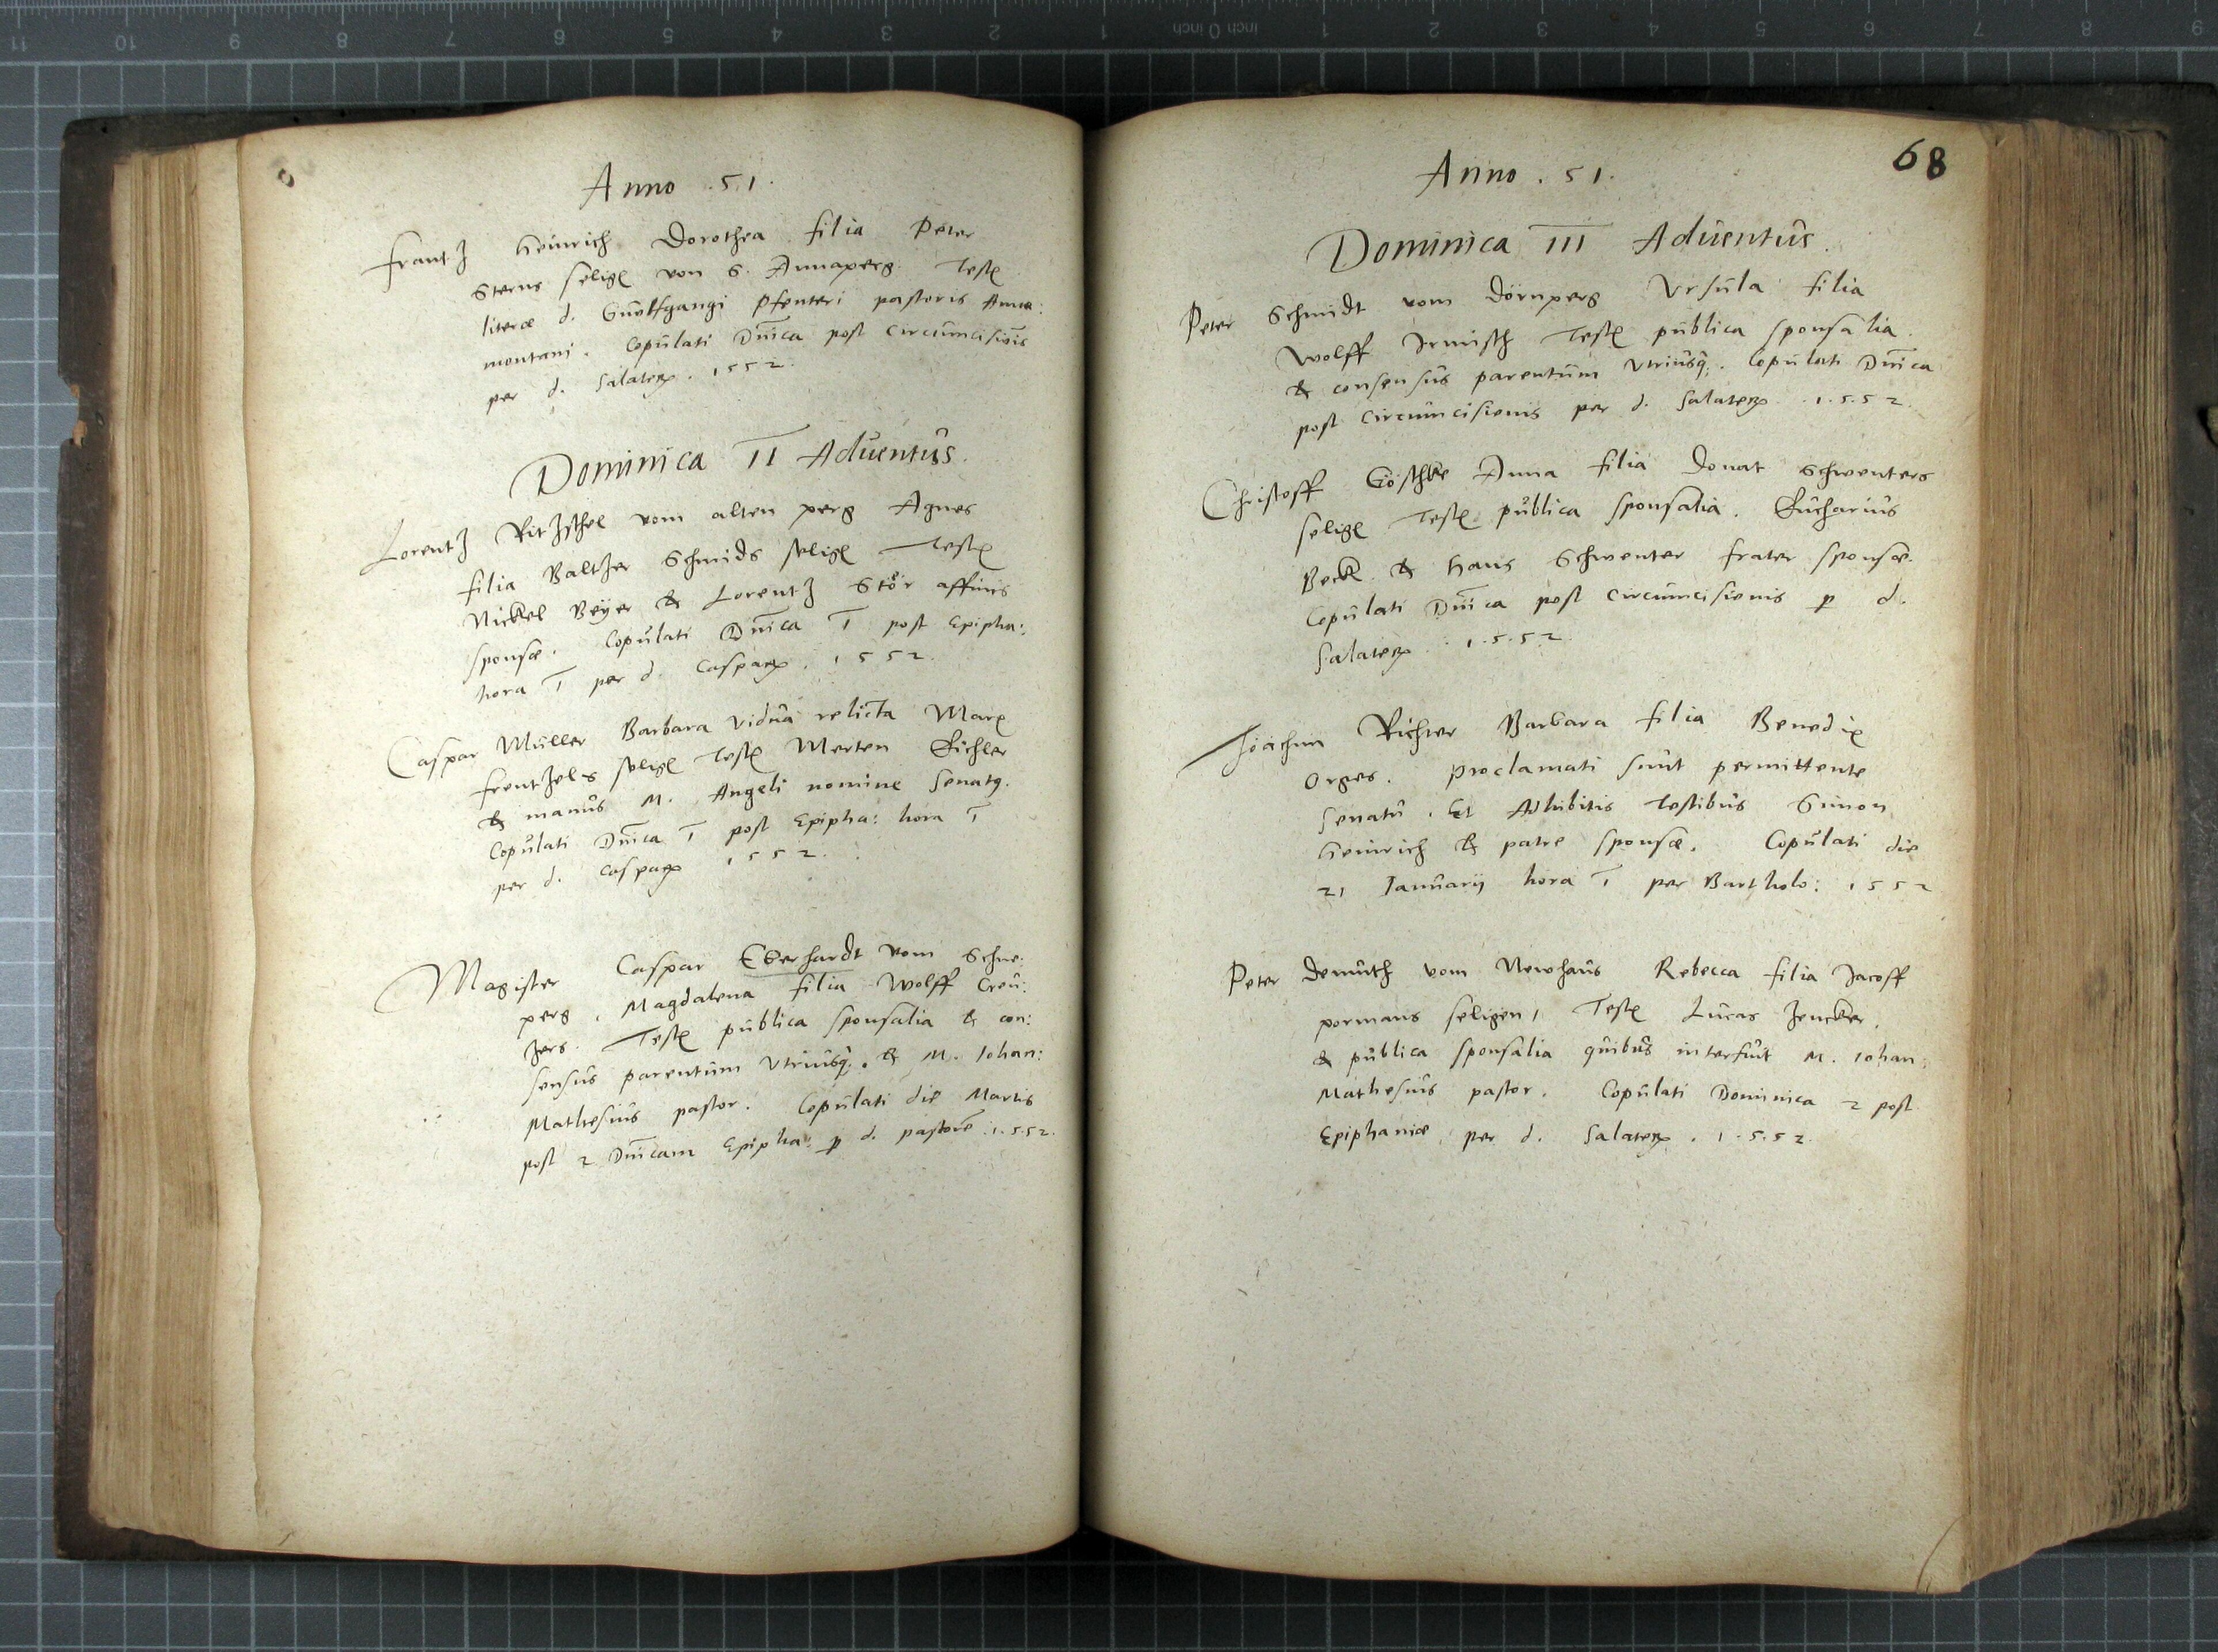 Anno . 51 .
Frantz Heinrich Dorothea filia Peter
Sterns selige von S. Annaperg. Teste
literæ d. Guolfgangi Pfenteri pastoris Anna:
montani. Copulati Dnica post Circumcisiōis
per d. Salater. 1552.
Dominica II Aduentus.
Lorentz Ritzschel vom alten perg Agnes
filia Baltzer Schmids selige Teste
Nickel Beÿer & Lorentz Stör affinis
sponsæ. Copulati Dnica I post Epipha:
hora I per d. Caspar. 1552.
Caspar Müller Barbara vidua relicta Marx
frentzels selige Teste Merten Eichler
& manus M. Angeli nomine Senatq.
Copulati Dnica I post Epipha: hora I
per d. Caspar 1552.
Magister Caspar Eberhardt vom Schne:
perg. Magdalena filia Wolff Creü:
zers. Teste publica sponsalia & con:
sensus parentum vtriusq. & M. Iohan:
Mathesius pastor. Copulati die Martis
post 2 Dnicam Epipha: p d. pastore 1.5.52.
68
Anno . 51.
Dominica III Aduentus.
Peter Schmidt vom dörnperg Vrsula filia
Wolff Irmisch Teste publica sponsalia.
& consensus parentum vtriusq. Copulati Dnica
post Circumcisionis per d. Salater. 1.5.52.
Christoff Göschke Anna filia Donat Schwenters
selige Teste publica sponsalia. Eucharius
Beck & Hans Schwenter frater sponsæ.
Copulati Dnica post Circumcisionis p d.
Salater. 1.5.52.
Joachim Richter Barbara filia Benedix
Orges. Proclamati sunt permittente
Senatu. Et Adhibitis Testibus Simon
Heinrich & patre sponsæ. Copulati die
21 Ianuarij hora I per Bartholo: 1552
Peter Demuth vom Newhaus Rebecca filia Jacoff
pormans seligen, Teste Lucas Zencker,
& publica sponsalia quibus interfuit M. Iohan:
Mathesius pastor. Copulati Dominica 2 post
Epiphaniæ per d. Salater. 1.5.52.